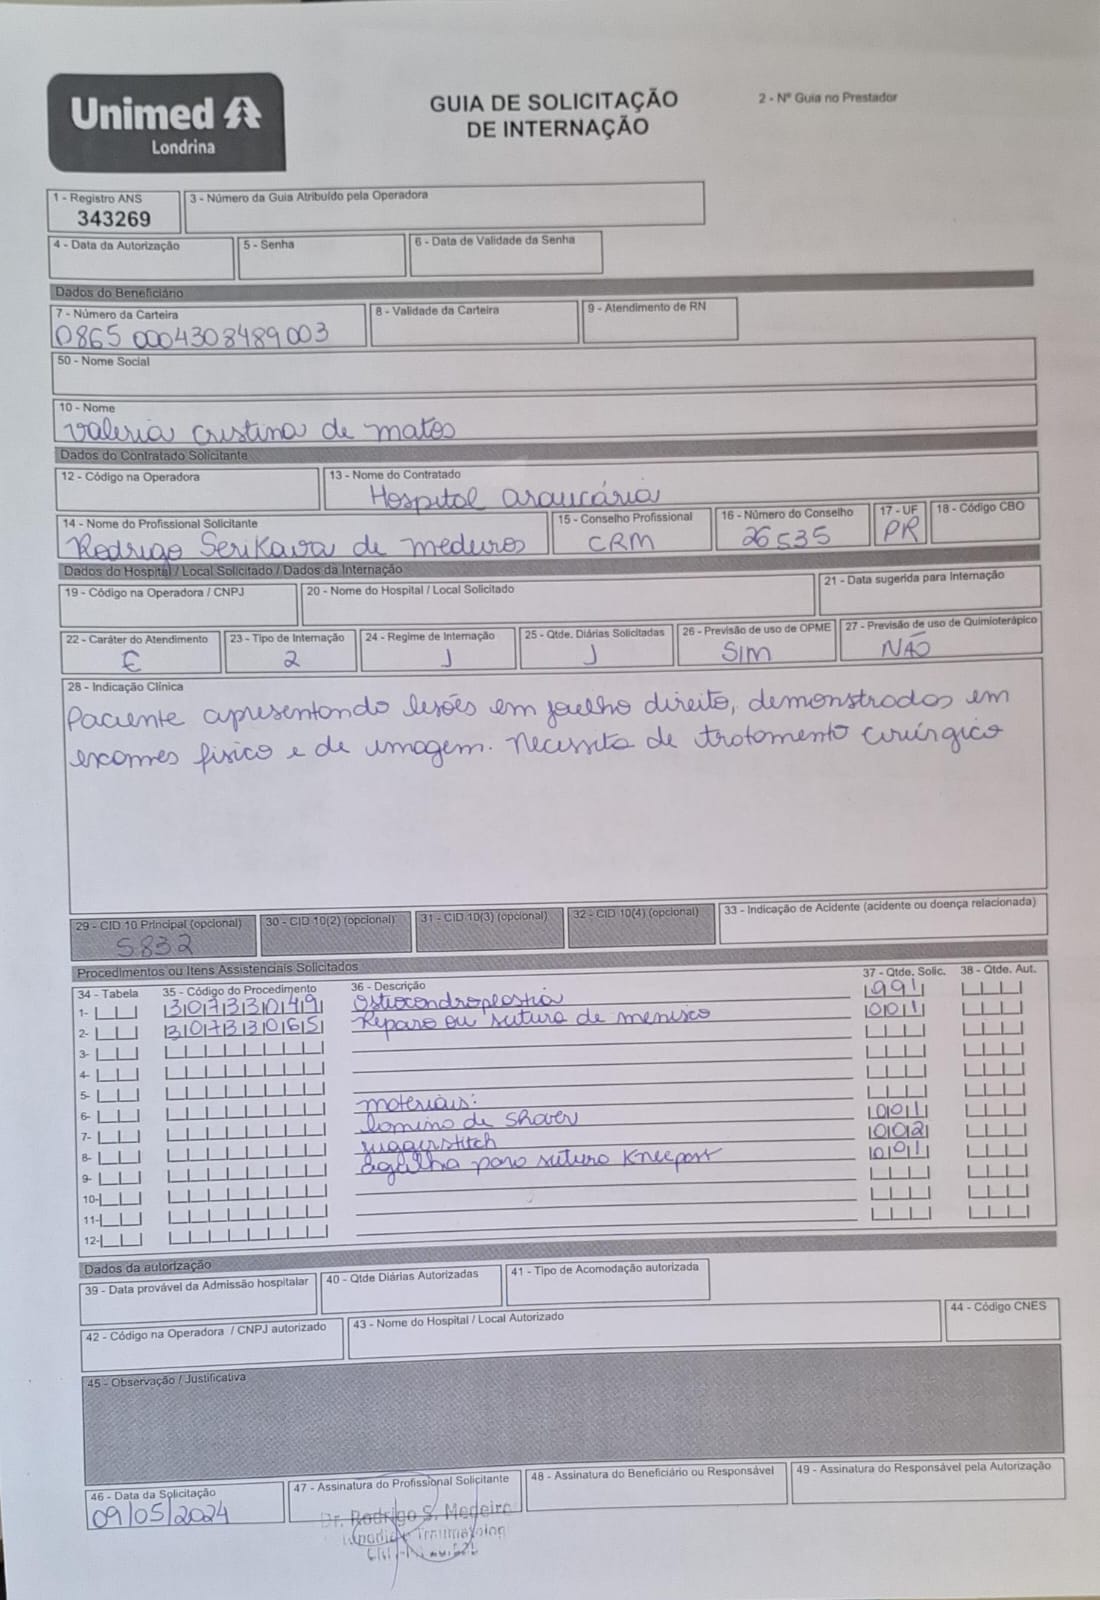 Unimed
Londrina
GUIA DE SOLICITAÇÃO
DE INTERNAÇÃO
2 - Nº Guia no Prestador
1 - Registro ANS
343269
3 - Número da Guia Atribuído pela Operadora
4 - Data da Autorização
5 - Senha
6 - Data de Validade da Senha
Dados do Beneficiário
7 - Número da Carteira
0865 0004308489003
8 - Validade da Carteira
9 - Atendimento de RN
50 - Nome Social
10 - Nome
Valeria Cristina de matos
Dados do Contratado Solicitante
12 - Código na Operadora
13 - Nome do Contratado
Hospital araucária
14 - Nome do Profissional Solicitante
Rodrigo Serikawa de medeiros
15 - Conselho Profissional
CRM
16 - Número do Conselho
26535
17 - UF
PR
18 - Código CBO
Dados do Hospital / Local Solicitado / Dados da Internação
19 - Código na Operadora / CNPJ
20 - Nome do Hospital / Local Solicitado
21 - Data sugerida para Internação
22 - Caráter do Atendimento
E
23 - Tipo de Internação
2
24 - Regime de Internação
1
25 - Qtde. Diárias Solicitadas
1
26 - Previsão de uso de OPME
SIM
27 - Previsão de uso de Quimioterápico
NÃO
28 - Indicação Clínica
Paciente apresentando lesões em joelho direito, demonstrados em
exames fisico e de imagem. Necessita de tratamento cirúrgico
29 - CID 10 Principal (opcional)
S832
30 - CID 10(2) (opcional)
31 - CID 10(3) (opcional)
32 - CID 10(4) (opcional)
33 - Indicação de Acidente (acidente ou doença relacionada)
Procedimentos ou Itens Assistenciais Solicitados
34 - Tabela
35 - Código do Procedimento
36 - Descrição
37 - Qtde. Solic.
38 - Qtde. Aut.
1- 30733049 Osteocondroplastia
2- 30733065 Reparo ou sutura de menisco 001
3-
4-
5-
6- materiais:
7- lamina de shaver 001
8- juggerstitch 002
9- agulha para sutura Kneeport 001
10-
11-
12-
Dados da autorização
39 - Data provável da Admissão hospitalar
40 - Qtde Diárias Autorizadas
41 - Tipo de Acomodação autorizada
42 - Código na Operadora / CNPJ autorizado
43 - Nome do Hospital / Local Autorizado
44 - Código CNES
45 - Observação / Justificativa
46 - Data da Solicitação
09/05/2024
47 - Assinatura do Profissional Solicitante
Dr. Rodrigo S. Medeiro
48 - Assinatura do Beneficiário ou Responsável
49 - Assinatura do Responsável pela Autorização